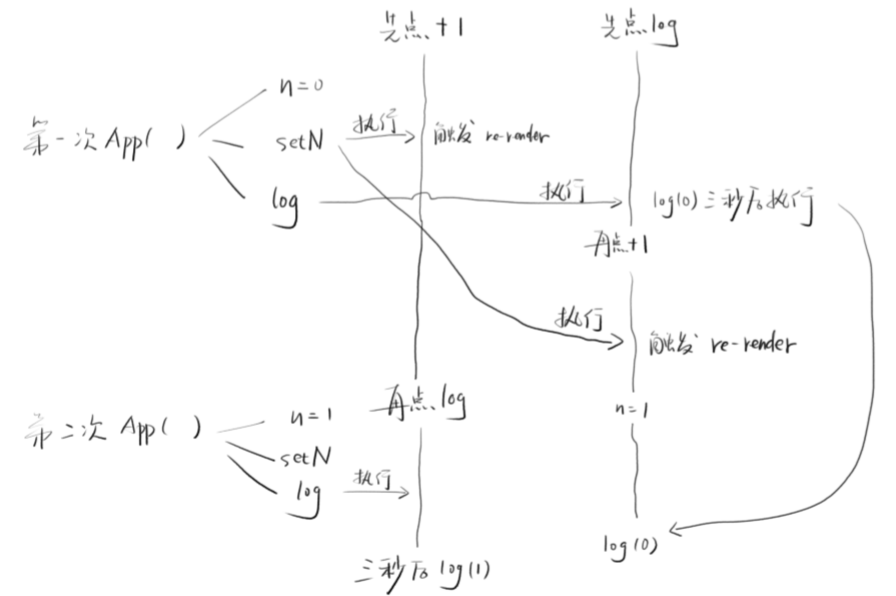 先点 +1
先点 log
n=0
第一次 App( )
setN
执行
触发 re-render
log
执行
log(0) 三秒后执行
再点+1
执行
触发 re-render
再点 log
n=1
第二次 App( )
n=1
setN
log
执行
log(0)
三秒后 log(1)